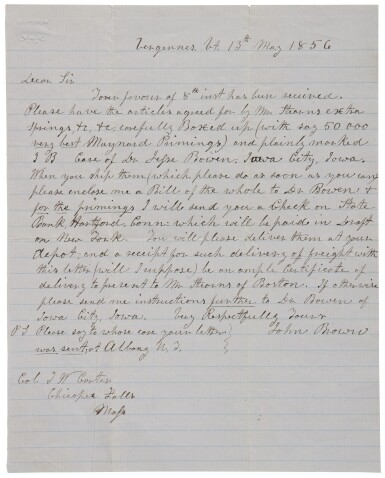 Vergennes Vt. 13th May 1856
Dear Sir
Your favour of 8th inst has been received.
Please have the articles agreed for by Mr Stearns extra
springs &c, &c, carefully Boxed up (with say 50 000
very best Maynard Primings) and plainly marked
J B Care of Dr Jesse Bowen, Iowa City, Iowa.
When you ship them (which please do as soon as you can)
please enclose me a Bill of the whole to Dr Bowen &
for the primings I will send you a Check on State
Bank, Hartford, Conn: which will be paid in Draft
on New York. You will please deliver them at your
depot, and a receipt for such delivery of freight with
this letter (will I suppose) be an ample Certificate of
delivery to present to Mr Stearns of Boston. If otherwise
please send me instructions further to Dr Bowen of
Iowa City, Iowa. Very Respectfully Yours
P S Please say to whose care your letter John Brown
was sent, at Albany N. Y.
Col. T W Carter
Chicopee Falls
Mass